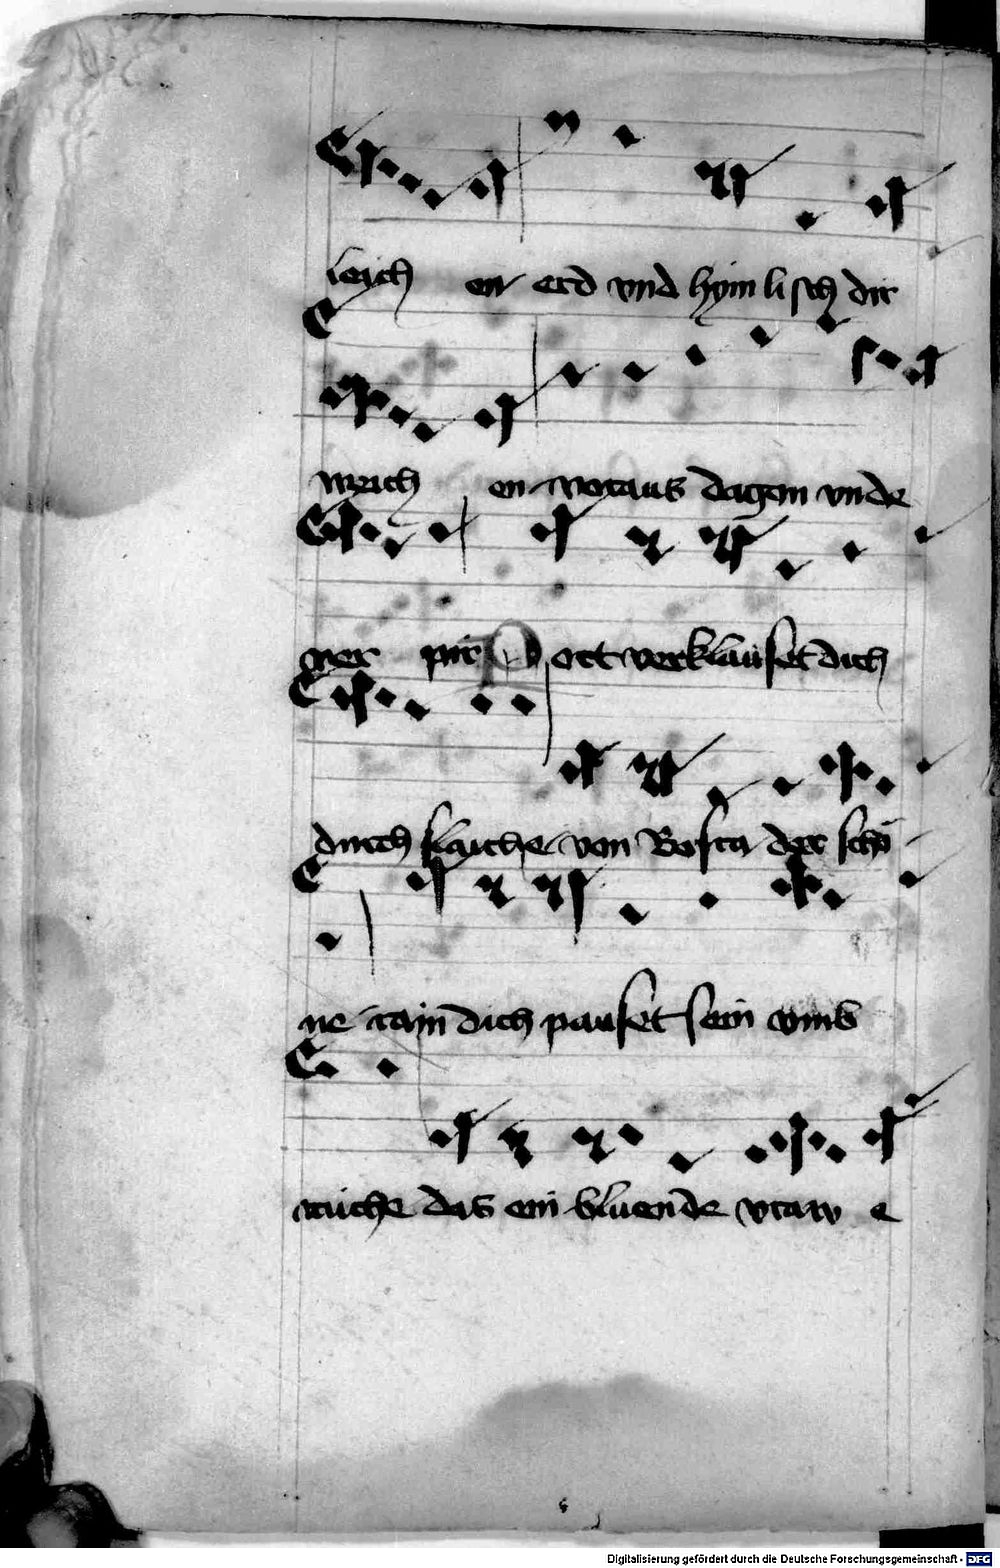 leich en erd vnd hymlisch dir
weich en voraus dagein vnde
ner pir Port verklauset dich
durch slauche von Bosra der schō
ne rain dich pauset sein vmb
rauche das ein bluende vraw e
Digitalisierung gefördert durch die Deutsche Forschungsgemeinschaft - DFG